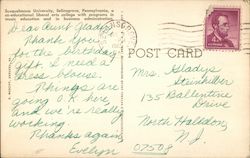 Susquehanna University, Selinsgrove, Pennsylvania,
co-educational liberal arts college with programs in
music education and in business administration.
Dear Aunt Gladys,
Thank you
for the birthday
gift. I need a
dress blouse.
Things are
going O.K. here
and we're really
working
Thanks again,
Evelyn
POST CARD
Mrs. Gladys
135 Ballentine
Drive
North Haledon,
N.J.
07508